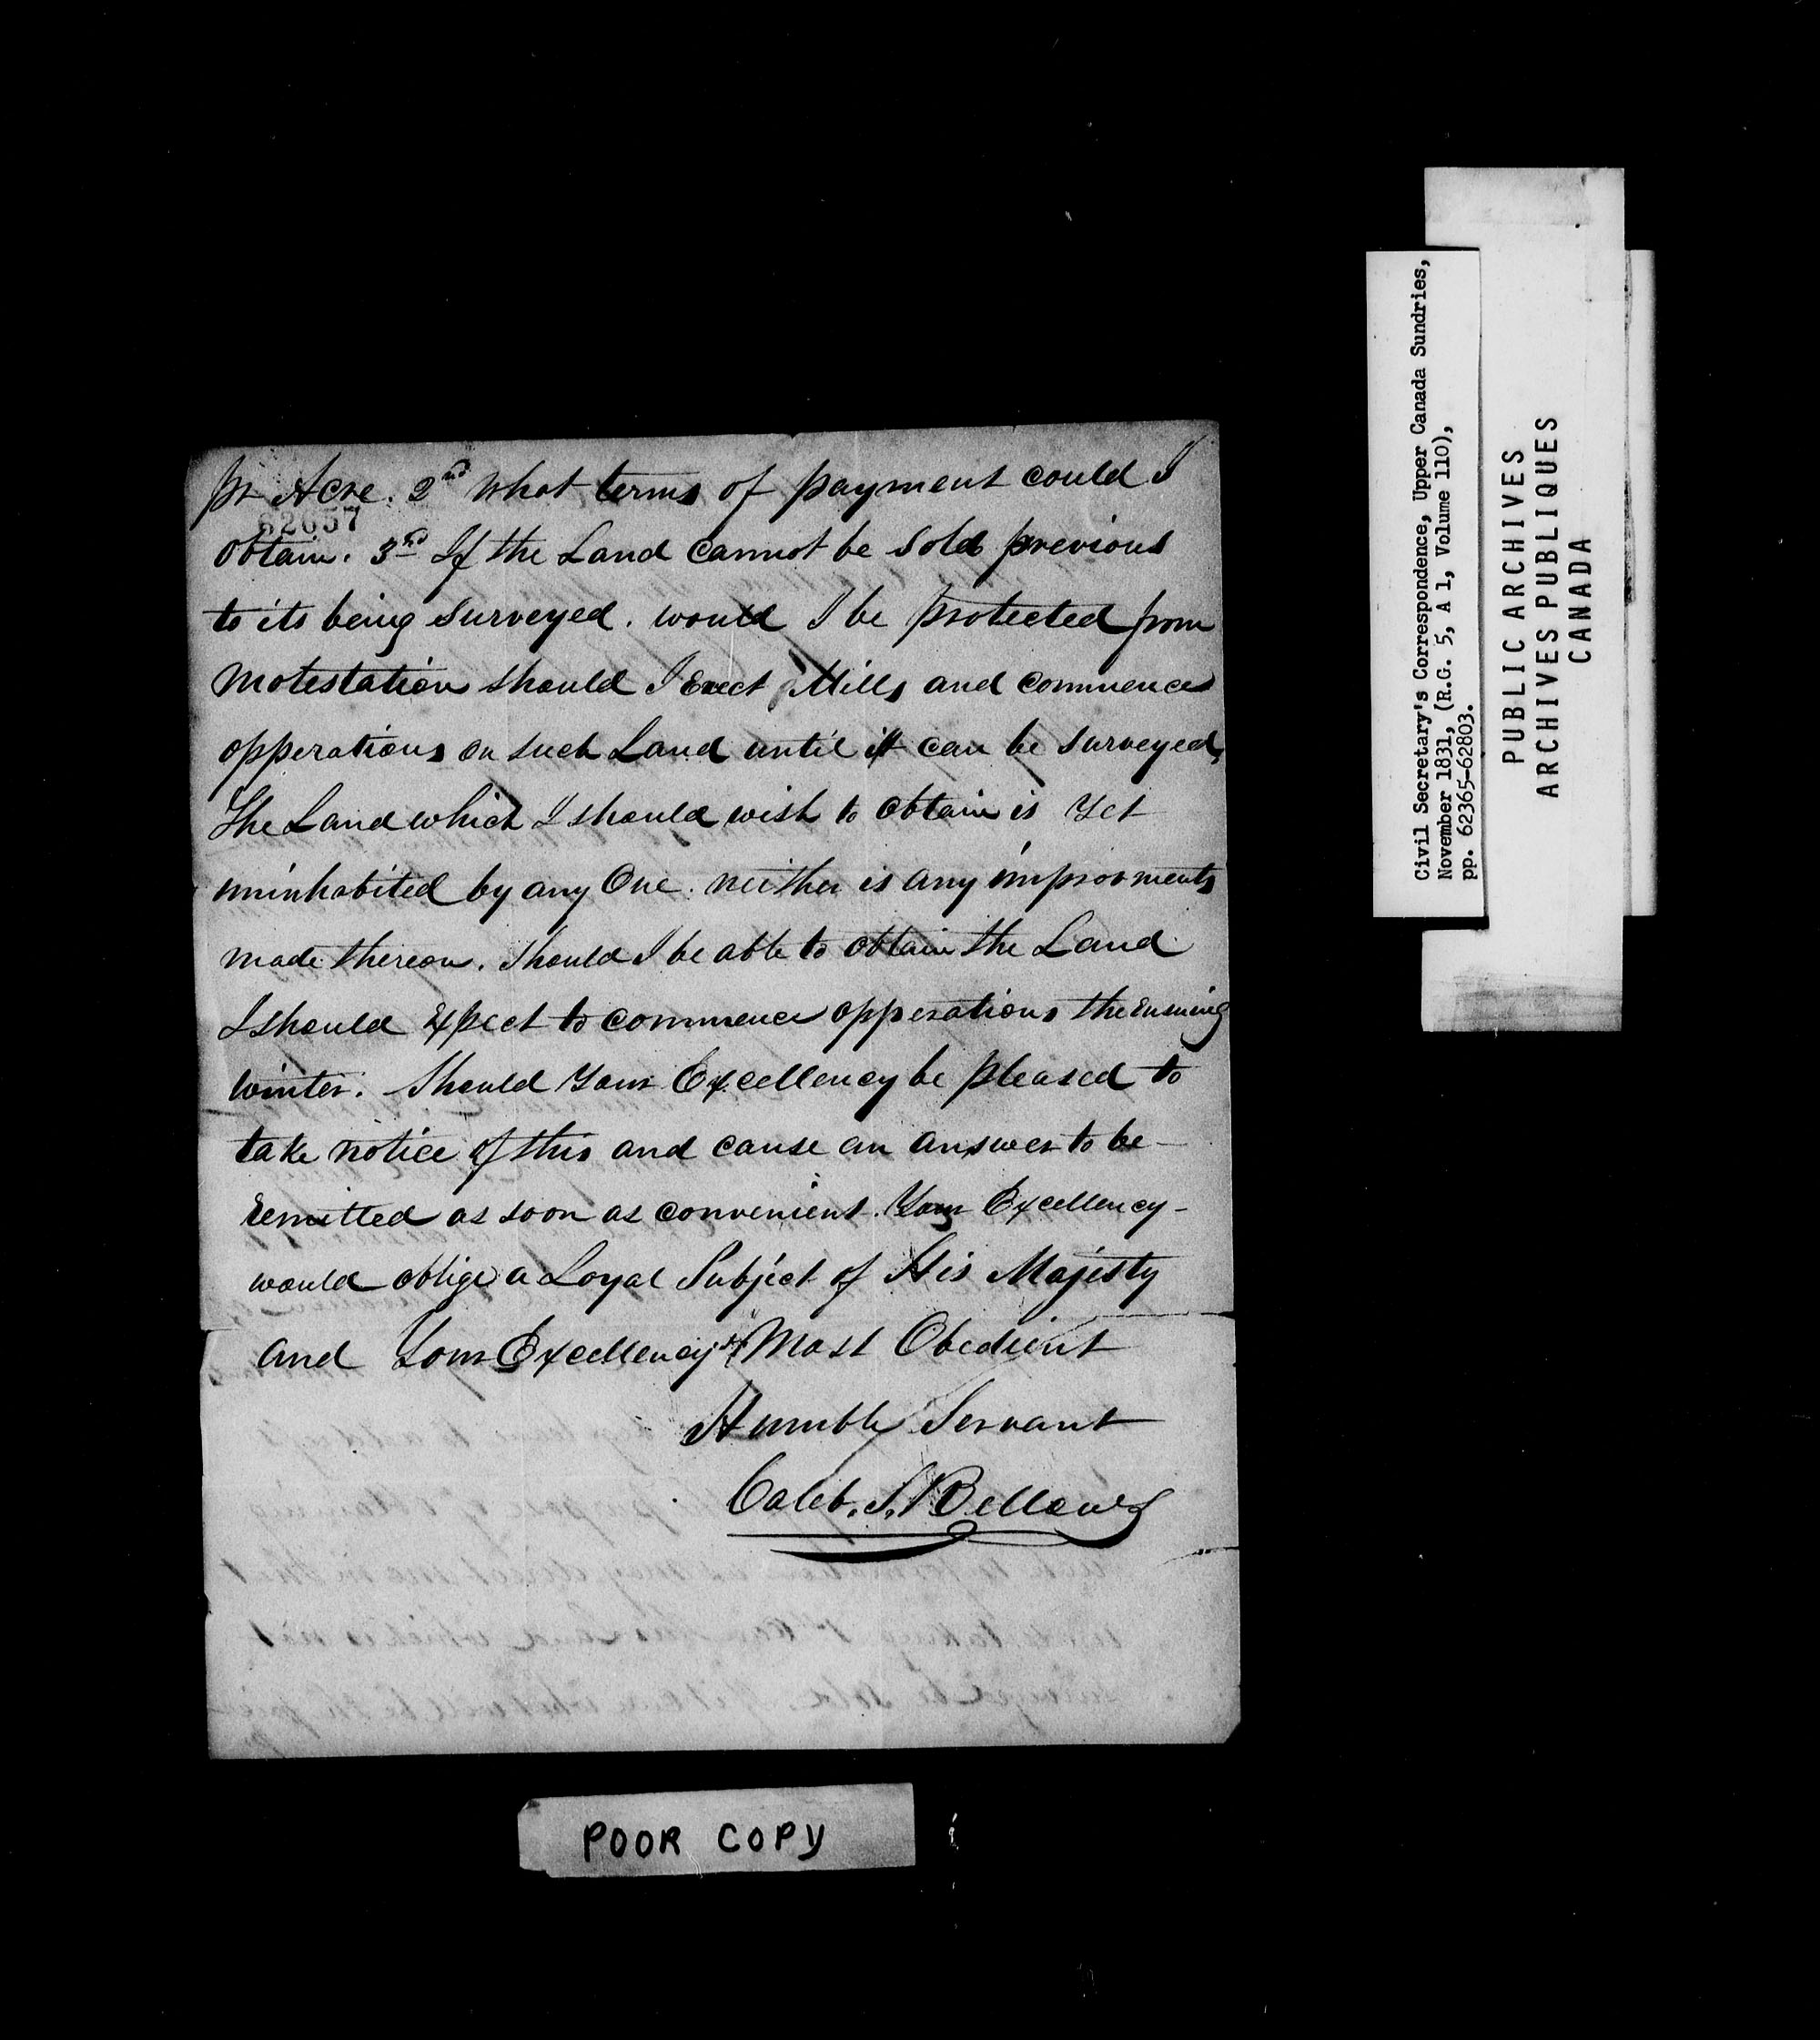 pr Acre. 2nd What terms of payment could I
62657
obtain. 3rd If the Land cannot be Sold previous
to its being Surveyed. would I be protected from
Motestation should I Erect Mills and commence
opperations on such Land until it can be surveyed,
The Land which I should wish to obtain is Yet
uninhabited by any One. neither is any improvments
made thereon. Should I be able to obtain the Land
I should Expect to commence opperations the ensuing
winter. Should Your Excellency be pleased to
take notice of this and cause an answer to be
remitted as soon as convenient. Your Excellency
would oblige a Loyal Subject of His Majesty
and Your Excellency's Most Obedient
Humble Servant
Caleb. S. Bellows
POOR COPY
Civil Secretary's Correspondence, Upper Canada Sundries,
November 1831, (R.G. 5, A 1, Volume 110),
pp. 62365-62803.
PUBLIC ARCHIVES
ARCHIVES PUBLIQUES
CANADA